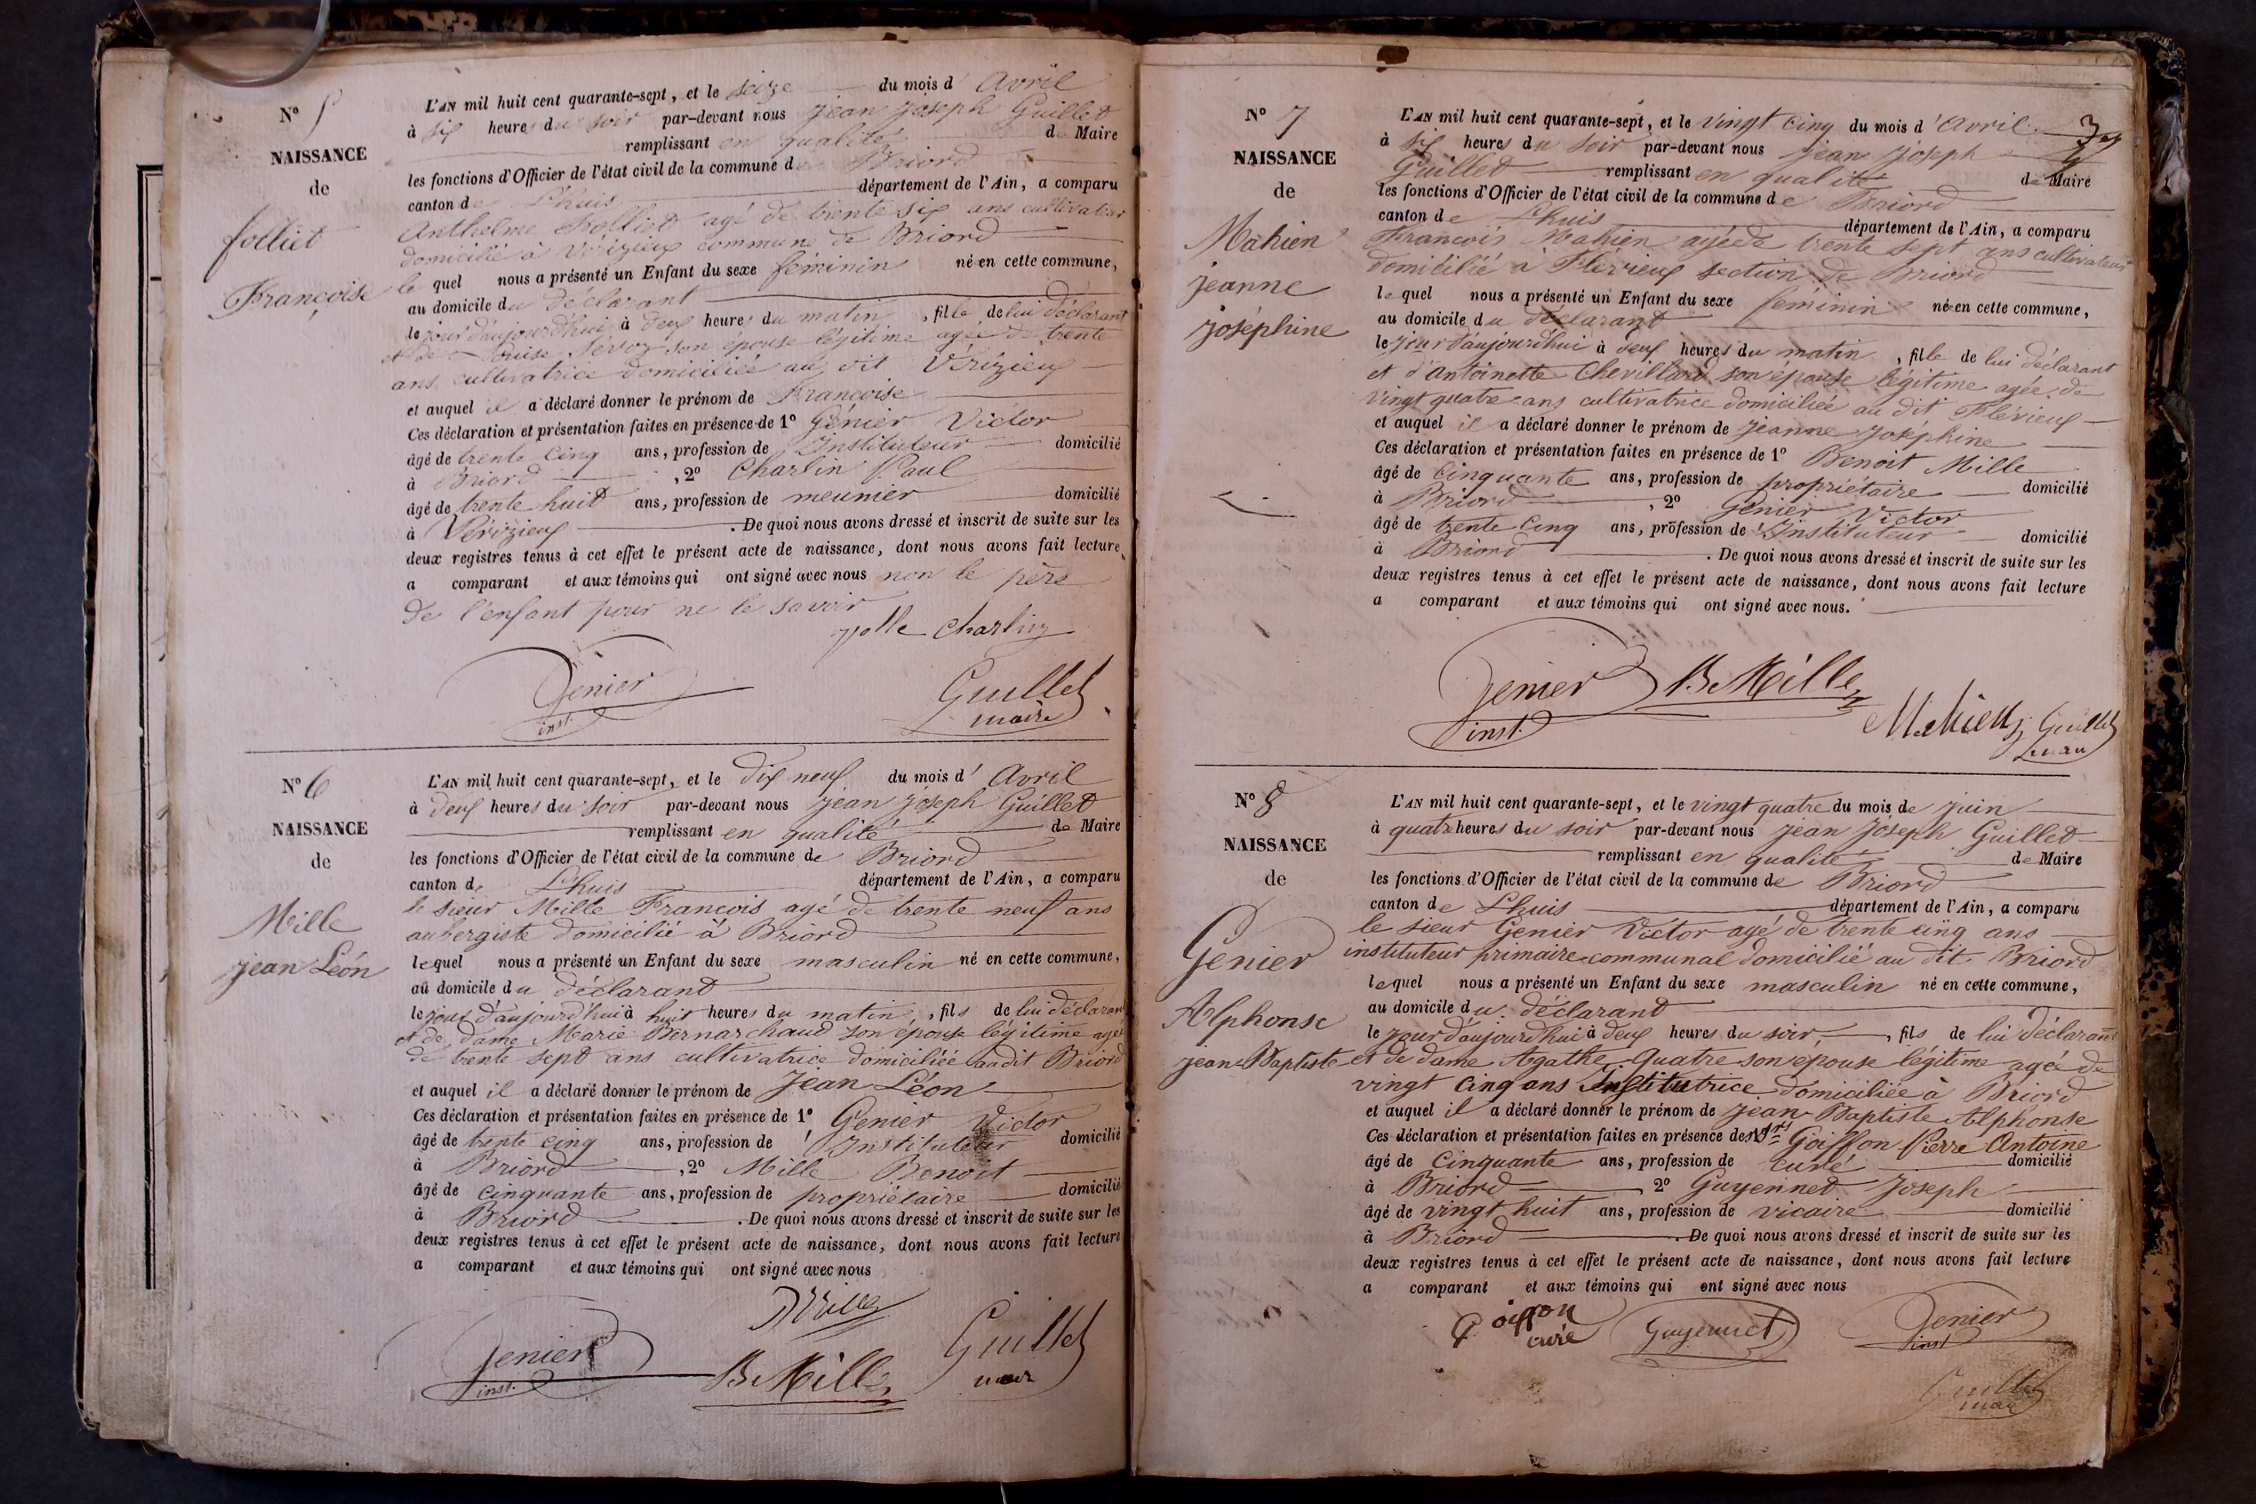 N° 5
NAISSANCE
de
folliet
Françoise
L'AN mil huit cent quarante-sept, et le seize du mois d' Avril
à six heures du soir par-devant nous jean joseph Guillet
remplissant en qualité de Maire
les fonctions d'Officier de l'état civil de la commune d Briord
canton de Lhuis département de l'Ain, a comparu
Anthelme Folliet agé de trente six ans cultivateur
domicilié à Vérizieux commune de Briord
le quel nous a présenté un Enfant du sexe féminin né en cette commune,
au domicile du déclarant
le jour d'aujourd'hui à deux heures du matin, fille de lui déclarant
et de Louise Sévoz son épouse légitime agée de trente
ans cultivatrice domiciliée au dit Vérizieux
et auquel il a déclaré donner le prénom de Françoise
Ces déclaration et présentation faites en présence de 1° Génier Victor
âgé de trente cinq ans, profession de Instituteur domicilié
à Briord, 2° Charlin Paul
âgé de trente huit ans, profession de meunier domicilié
à Vérizieux. De quoi nous avons dressé et inscrit de suite sur les
deux registres tenus à cet effet le présent acte de naissance, dont nous avons fait lecture
a comparant et aux témoins qui ont signé avec nous non le père
de l'enfant pour ne le savoir
Charlin
Genier
inst.
Guillet
maire
N° 6
NAISSANCE
de
Mille
jean Léon
L'AN mil huit cent quarante-sept, et le dix neuf du mois d' Avril
à deux heures du soir par-devant nous jean joseph Guillet
remplissant en qualité de Maire
les fonctions d'Officier de l'état civil de la commune de Briord
canton de Lhuis département de l'Ain, a comparu
le sieur Mille François agé de trente neuf ans
aubergiste domicilié à Briord
lequel nous a présenté un Enfant du sexe masculin né en cette commune,
au domicile du déclarant
le jour d'aujourd'hui à huit heures du matin, fils de lui déclarant
et de dame Marie Bernarchaud son épouse légitime agée
de trente sept ans cultivatrice domiciliée audit Briord
et auquel il a déclaré donner le prénom de Jean Léon
Ces déclaration et présentation faites en présence de 1° Genier Victor
âgé de trente cinq ans, profession de Instituteur domicilié
à Briord, 2° Mille Benoit
âgé de cinquante ans, profession de propriétaire domicilié
à Briord. De quoi nous avons dressé et inscrit de suite sur les
deux registres tenus à cet effet le présent acte de naissance, dont nous avons fait lecture
a comparant et aux témoins qui ont signé avec nous
Mille
Genier
inst.
B. Mille
Guillet
N° 7
NAISSANCE
de
Mahieu
jeanne
joséphine
L'AN mil huit cent quarante-sept, et le vingt cinq du mois d'Avril
à six heures du soir par-devant nous jean joseph
Guillet remplissant en qualité de Maire
les fonctions d'Officier de l'état civil de la commune de Briord
canton de Lhuis département de l'Ain, a comparu
François Mahieu agée de trente sept ans cultivateur
domicilié à Flérieux section de Briord
lequel nous a présenté un Enfant du sexe féminin né en cette commune,
au domicile du déclarant
le jour d'aujourd'hui à deux heures du matin, fille de lui déclarant
et d'Antoinette Chevillard son épouse légitime agée de
vingt quatre ans cultivatrice domiciliée au dit Flérieux
et auquel il a déclaré donner le prénom de jeanne joséphine
Ces déclaration et présentation faites en présence de 1° Benoit Mille
âgé de cinquante ans, profession de propriétaire domicilié
à Briord, 2° Genier Victor
âgé de trente cinq ans, profession de Instituteur domicilié
à Briord. De quoi nous avons dressé et inscrit de suite sur les
deux registres tenus à cet effet le présent acte de naissance, dont nous avons fait lecture
a comparant et aux témoins qui ont signé avec nous.
Genier
inst.
B. Mille
Mahieu
Guillet
N° 8
NAISSANCE
de
Génier
Alphonse
jean-Baptiste
L'AN mil huit cent quarante-sept, et le vingt quatre du mois de juin
à quatre heures du soir par-devant nous jean Joseph Guillet
remplissant en qualité de Maire
les fonctions d'Officier de l'état civil de la commune de Briord
canton de Lhuis département de l'Ain, a comparu
le sieur Génier Victor agé de trente cinq ans
instituteur primaire communal domicilié au dit Briord
lequel nous a présenté un Enfant du sexe masculin né en cette commune,
au domicile du déclarant
le jour d'aujourd'hui à deux heures du soir, fils de lui déclarant
et de dame Agathe Quatre son épouse légitime agée de
vingt cinq ans Institutrice domiciliée à Briord
et auquel il a déclaré donner le prénom de jean Baptiste Alphonse
Ces déclaration et présentation faites en présence des Srs Goiffon Pierre Antoine
âgé de cinquante ans, profession de curé domicilié
à Briord, 2° Guyennet Joseph
âgé de vingt huit ans, profession de vicaire domicilié
à Briord. De quoi nous avons dressé et inscrit de suite sur les
deux registres tenus à cet effet le présent acte de naissance, dont nous avons fait lecture
a comparant et aux témoins qui ont signé avec nous
Goiffon
curé
Guyennet
Genier
inst
Guillet
maire